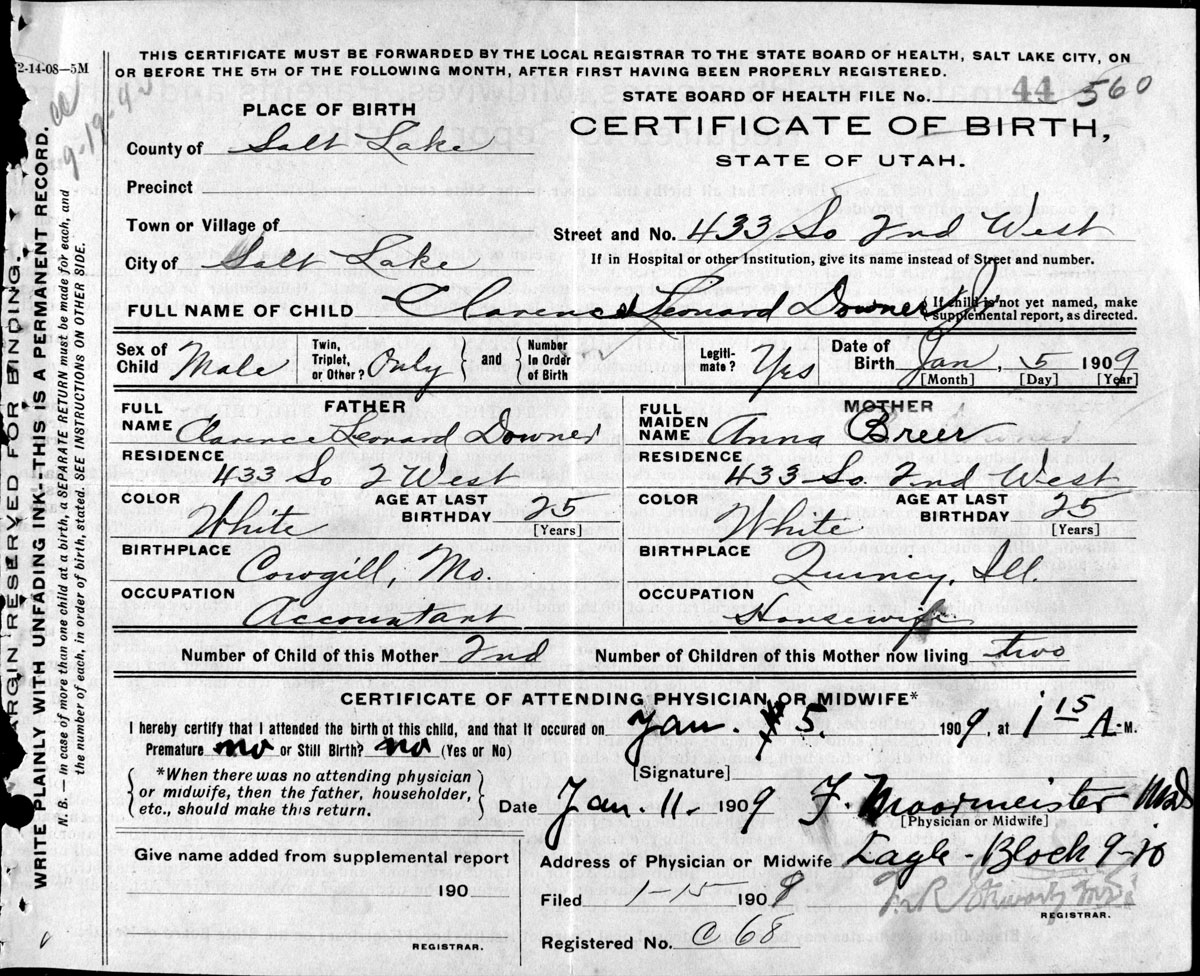 2-14-08—5M
THIS CERTIFICATE MUST BE FORWARDED BY THE LOCAL REGISTRAR TO THE STATE BOARD OF HEALTH, SALT LAKE CITY, ON
OR BEFORE THE 5TH OF THE FOLLOWING MONTH, AFTER FIRST HAVING BEEN PROPERLY REGISTERED.
STATE BOARD OF HEALTH FILE No. 44 560
PLACE OF BIRTH
CERTIFICATE OF BIRTH,
STATE OF UTAH.
County of Salt Lake
Precinct
Town or Village of
Street and No. 433 So 2nd West
City of Salt Lake
If in Hospital or other Institution, give its name instead of Street and number.
FULL NAME OF CHILD Clarence Leonard Downer Jr
{ If child is not yet named, make
supplemental report, as directed.
Sex of Child Male
Twin, Triplet, or Other? Only } and { Number In Order of Birth
Legiti-mate? Yes
Date of Birth Jan, 5 1909
[Month] [Day] [Year]
FATHER
FULL NAME Clarence Leonard Downer
RESIDENCE
433 So 2 West
COLOR White
AGE AT LAST BIRTHDAY 25
[Years]
BIRTHPLACE
Cowgill, Mo.
OCCUPATION
Accountant
MOTHER
FULL MAIDEN NAME Anna Breer
RESIDENCE
433 So. 2nd West
COLOR White
AGE AT LAST BIRTHDAY 25
[Years]
BIRTHPLACE
Quincy, Ill.
OCCUPATION
Housewife
Number of Child of this Mother 2nd
Number of Children of this Mother now living two
CERTIFICATE OF ATTENDING PHYSICIAN OR MIDWIFE*
I hereby certify that I attended the birth of this child, and that it occured on Jan. 5. 1909, at 1 15 A-M.
Premature no or Still Birth? no (Yes or No)
{ *When there was no attending physician
or midwife, then the father, householder,
etc., should make this return. }
[Signature]
Date Jan. 11. 1909 F. Moormeister M.D
[Physician or Midwife]
Address of Physician or Midwife Eagle-Block 9-10
Give name added from supplemental report
190
REGISTRAR.
Filed 1-15 1909
REGISTRAR.
Registered No. C 68
MARGIN RESERVED FOR BINDING.
WRITE PLAINLY WITH UNFADING INK—THIS IS A PERMANENT RECORD.
N. B. — In case of more than one child at a birth, a SEPARATE RETURN must be made for each, and
the number of each, in order of birth, stated. SEE INSTRUCTIONS ON OTHER SIDE.